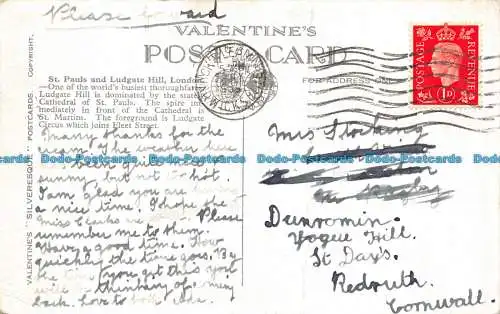 Please forward
VALENTINE'S
POST CARD
FOR ADDRESS ONLY
POSTAGE
REVENUE
1D
COPYRIGHT.
VALENTINE'S "SILVERESQUE" POSTCARDS.
St. Pauls and Ludgate Hill, London
—One of the world's busiest thoroughfares
Ludgate Hill is dominated by the stately
Cathedral of St. Pauls. The spire im-
mediately in front of the Cathedral is
St. Martin. The foreground is Ludgate
Circus which joins Fleet Street.
Many thanks for the
cream. The weather here
been
sunny, but not hot.
I am glad you are having
a nice time. I hope the
Miss are Please
remember me to them.
Have a good time. How
quickly the time goes. By
the time you get this you
will be thinking of coming
back. Love to both
Mrs Stocking
Dunromin.
Vogue Hill.
St Day.
Redruth.
Cornwall.
Dodo-Postcards.com